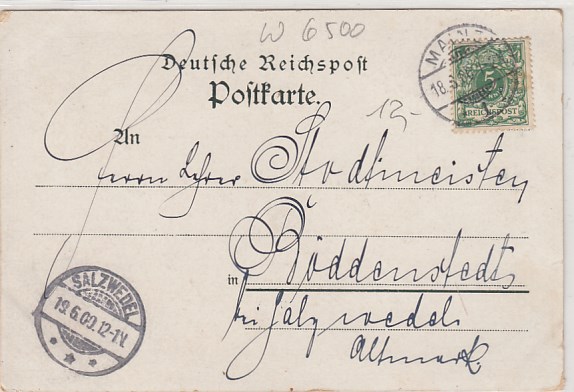 W 6500
Deutsche Reichspost
Postkarte.
12,-
MAINZ
18.
5
REICHSPOST
An
Herrn Lehrer Stodtmeister
in Böddenstedt
bei Salzwedel
Altmark
SALZWEDEL
19.6.00.12-1N.